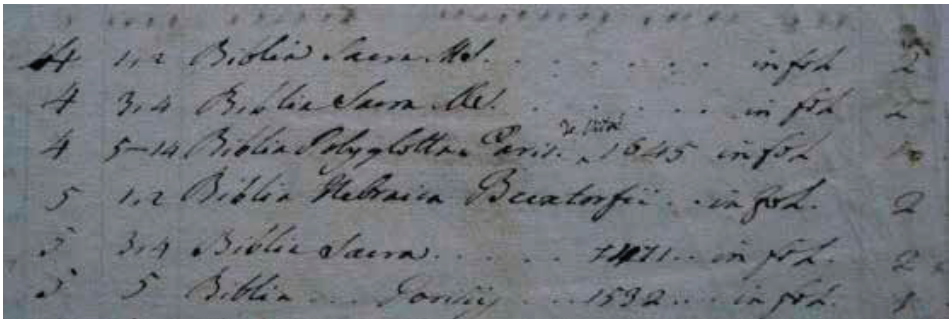 4 1.2 Biblia Sacra Ms. . . . . . . . in fol. 2
4 3.4 Biblia Sacra Ms. . . . . . . in fol 2
4 5-14 Biblia Polyglotta Paris. 1645 in fol
5 1.2 Biblia Hebraica Buxtorfii . . in fol. 2
5 3.4 Biblia Sacra . . . . . . 1471 . . in fol. 2
5 5 Biblia . . . . . . 1532 . . in fol. 1